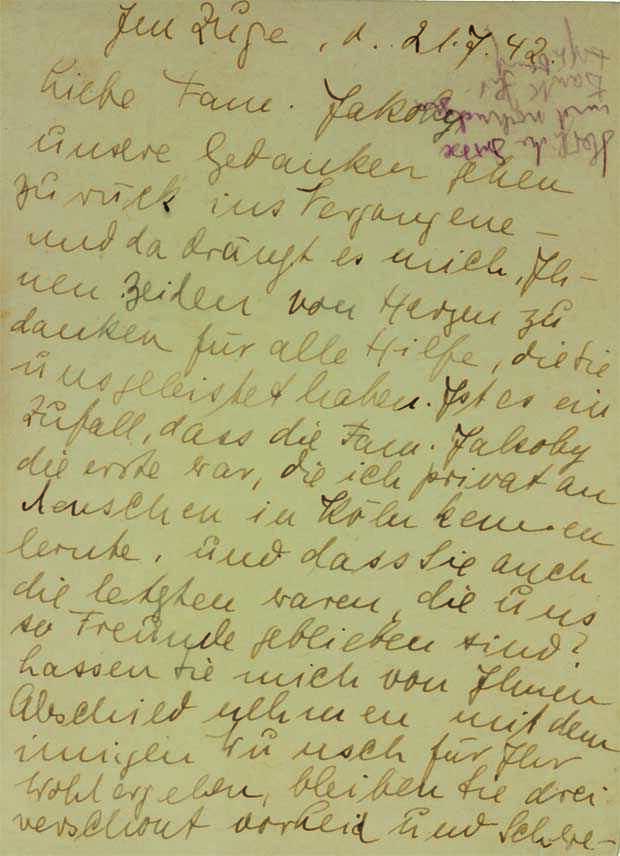 Im Zuge, d. 21.7.42.
Liebe Fam. Jakoby
unsere Gedanken gehen
zurück ins Vergangene –
und da drängt es mich, Ih-
nen Beiden von Herzen zu
danken für alle Hilfe, die Sie
uns geleistet haben. Ist es ein
Zufall, dass die Fam. Jakoby
die erste war, die ich privat an
Menschen in Köln kennen
lernte, und dass Sie auch
die letzten waren, die uns
so Freunde geblieben sind?
Lassen Sie mich von Ihnen
Abschied nehmen mit dem
innigen Wunsch für Ihr
Wohlergehen, bleiben Sie drei
verschont vor Leid und Schwe-
Herzliche Grüsse
und
Dank